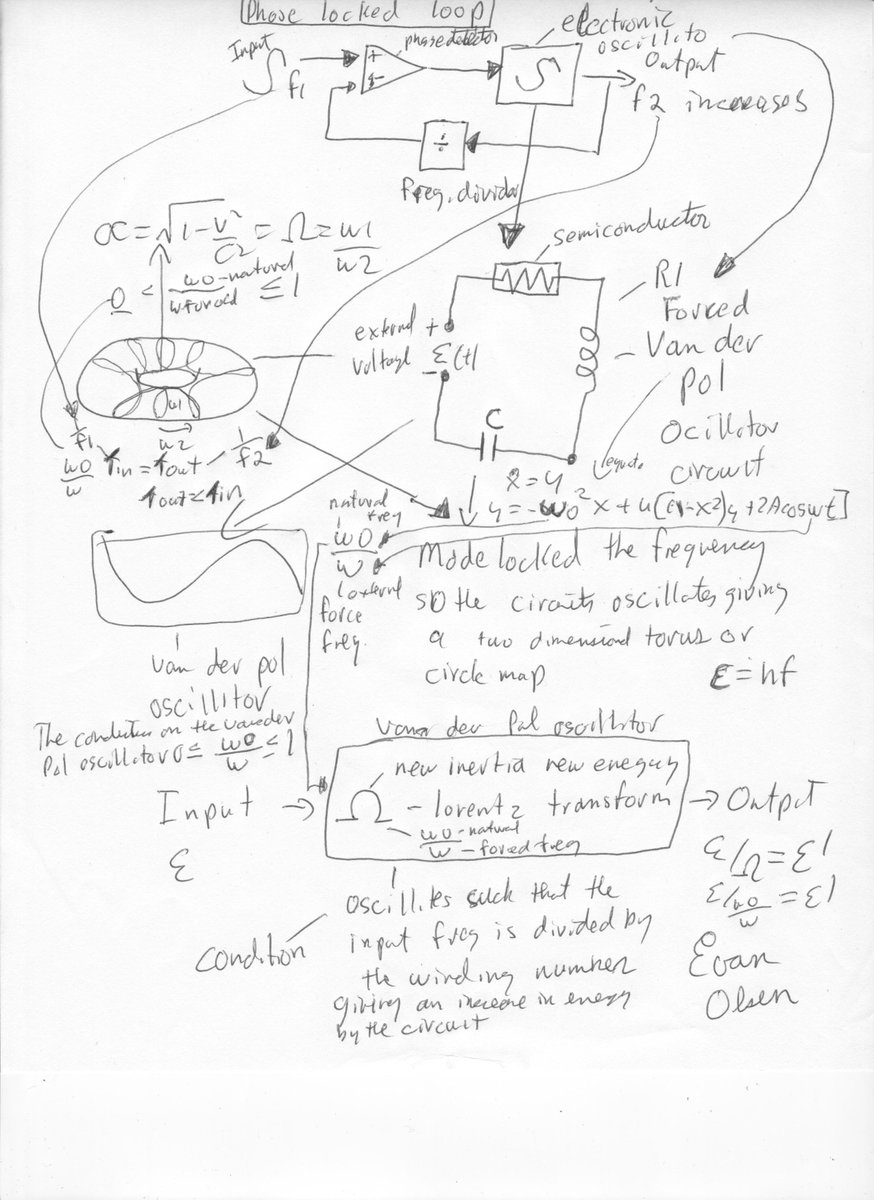 Phase locked loop
Input
f1
+
-
phase detector
electronic
oscillito
Output
f2 increases
÷
freq. divider
semiconductor
α = √1-v²/c2 = Ω = w1/w2
0 < w0-natural/w forced ≤ 1
external +
voltage - ε(t)
C
R1
Forced
Van der
pol
Ocillitor
circuit
w1
w2
1/f1
1/f2
w0/w
Tin = Tout
Tout ≤ Tin
ẋ = y
ẏ = -w0²x + u[(1-x2)y + 2Acoswt]
natural
freq
w0/w
external
force
freq.
Mode locked the frequency
so the circuits oscillates giving
a two dimensional torus or
circle map
ε = hf
van der pol
oscillitor
The condition on the vander
Pol oscillitor 0 ≤ w0/w ≤ 1
Vander Pol oscillitor
Input
ε
Ω
new inertia new eneguy
- lorentz transform
w0-natural
w-forced freq
Output
ε/Ω = ε1
ε/w0/w = ε1
condition
oscillites such that the
input freq is divided by
the winding number
giving an increase in energy
by the circuit
Evan
Olsen